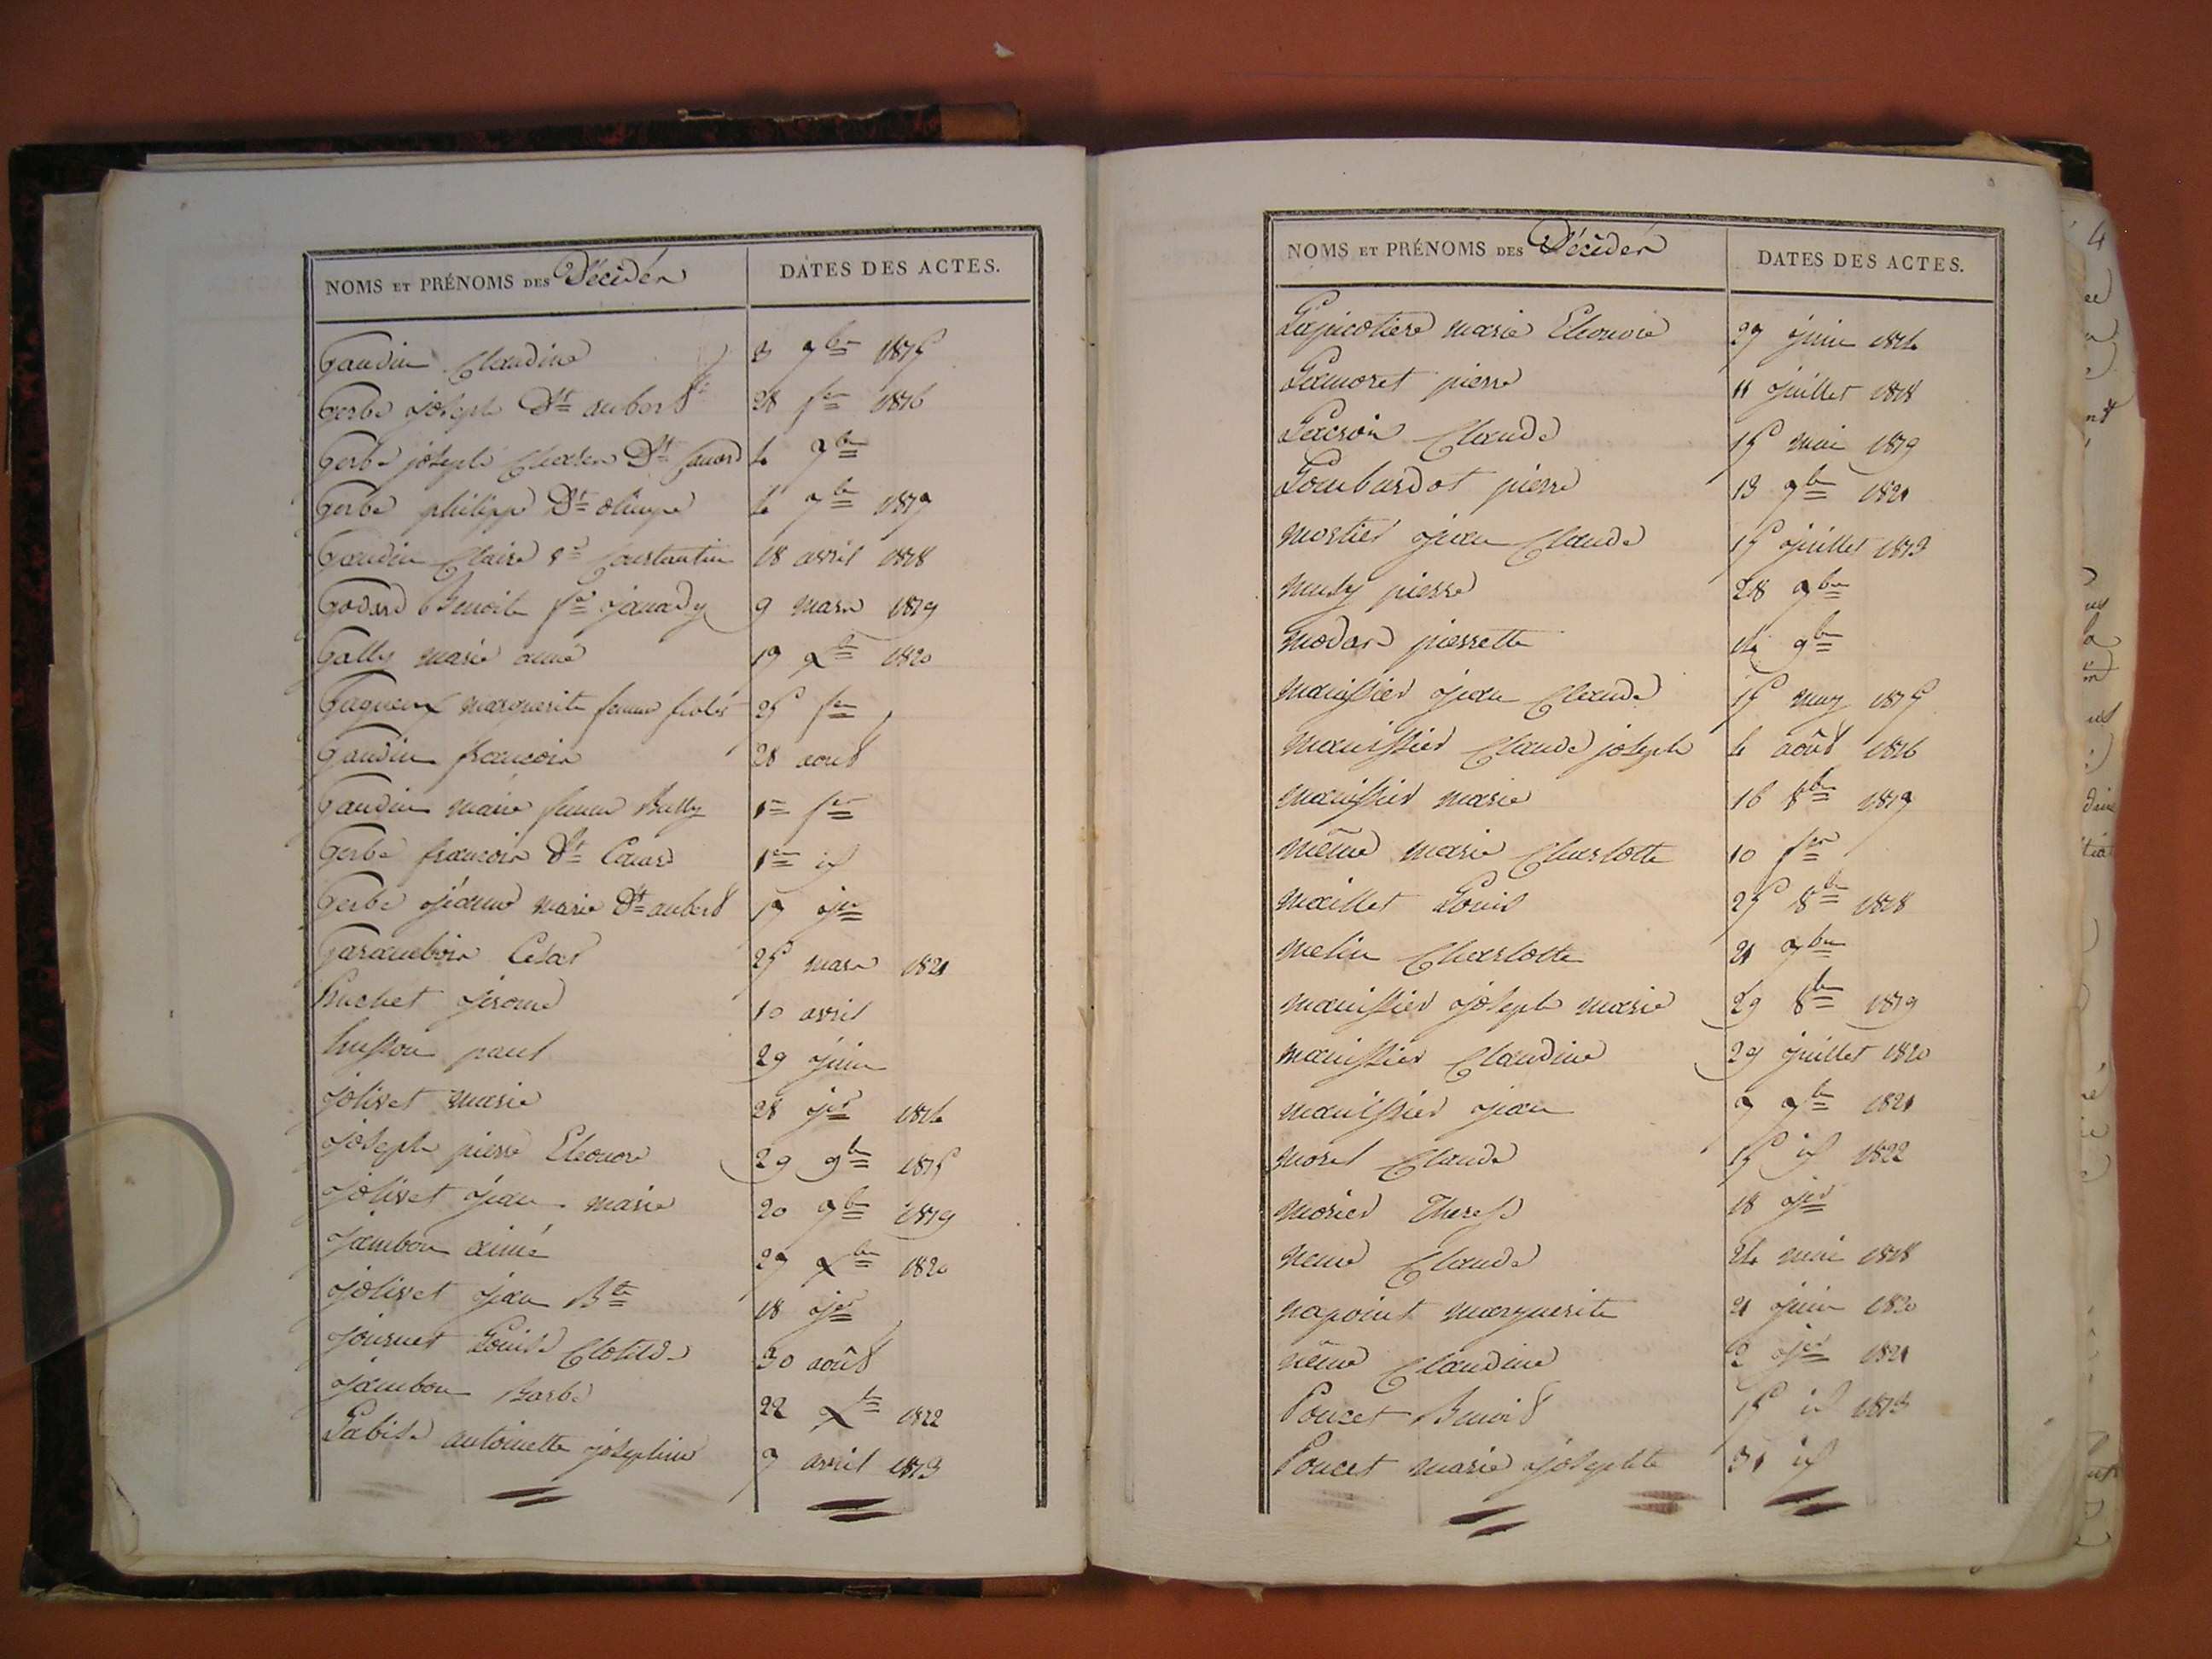 NOMS ET PRÉNOMS DES Décédés DATES DES ACTES.
Gaudin Claudine 3 7bre 1815
Gerbe joseph Dt aubert 28 fer 1816
Gerbe joseph Dt 4 9bre
Gerbe philippe Dt olimpe 4 7bre 1817
Gaudin Claire Constantin 18 avril 1818
Godard Benoite 9 mars 1819
Gally marie aimé 19 Xbre 1820
marguerite femme 25 fer
Gaudin francois 28 aout
Gaudin marie femme Bully 1er fer
Gerbe francois Dt 1er id
Gerbe jeanne marie Dt aubert 17 jer
Garambois César 25 mars 1821
Huchet jerome 10 avril
husson paul 29 juin
jolivet marie 28 jer 1814
joseph pierre Eleonore 29 9bre 1815
jolivet jean marie 20 9bre 1819
jambon aimé 27 Xbre 1820
jolivet jean Bte 18 jer
journet Louise Clotilde 30 août
jambon Barbe 22 Xbre 1822
Labise antoinette josephine 7 avril 1813
NOMS ET PRÉNOMS DES Décédés DATES DES ACTES.
Lapicotiere marie Eleonore 27 juin 1814
Lamoret pierre 11 juillet 1818
Claude 15 mai 1819
Lombardot pierre 13 9bre 1821
mortier jean Claude 15 juillet 1813
musy pierre 28 9bre
modas pierrette 14 9bre
manissier jean Claude 15 mars 1815
manissier Claude joseph 4 août 1816
manissier marie 16 8bre 1817
même marie Charlotte 10 fer
maillet Louis 25 8bre 1818
melin Charlotte 21 7bre
manissier joseph marie 29 8bre 1819
manissier Claudine 29 juillet 1820
manissier jean 7 9bre 1821
morel Claude 15 id 1822
morier Therese 18 jer
neme Claude 24 mai 1818
napoint marguerite 21 juin 1820
nême Claudine 2 jer 1821
Poncet Benoit 15 id 1813
Poncet marie josephte 31 id